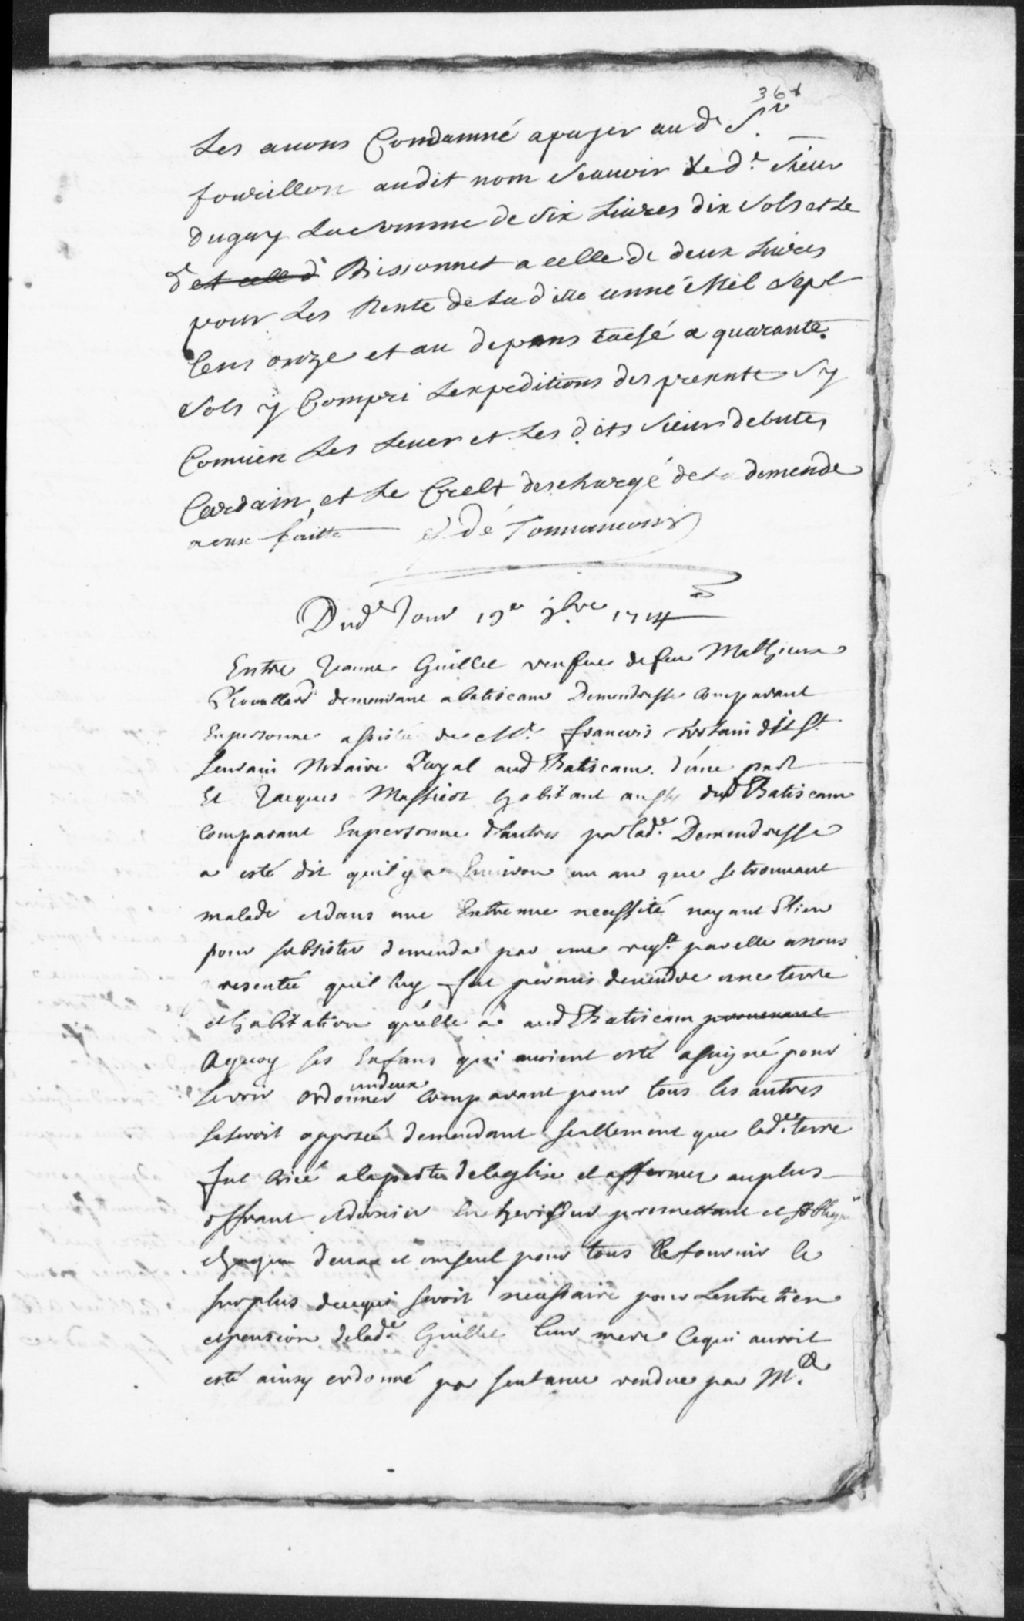 36
Les avons Condamné a payer au d. Sr.
fovcillon audit nom Scavoir Le d.t Sieur
duguy La Somme de Six Livres dix Sols et Le
d Bissonnet a celle de deux Livres
pour Les Rente de La ditte anné Mil Sept
Cens onze et au depans taesé a quarante
Sols y Compri Lexpeditions des presente Sy
Comien Les Lever et Les dits Sieurs debutes
Cardain et Le Crelt deschargé de demende
a eux faitte De Tonnancour
Dud. Jour 19e 1714
Entre Jeanne Guillet veufue de feu Mathieu
Rouillard demeurant a batiscam Demendresse Comparant
En personne assisté de Me. francois trotain dit St.
Seurain Notaire Royal aud Batiscam d'une part
Et Jacques Massicot habitant aussy dud Batiscam
Comparant En personne d'autres par lad. Demendresse
a esté dit quil y a Environ un an que se trouvant
malade et dans une Extreme necessité nayant Rien
pour subsister demenda par une reqt. par elle a nous
presentée quil luy fut permis de vendre une terre
et habitation quelle a aud Batiscam provenant
Aquoy ses Enfans qui avoient esté assigné pour
Le voir ordonner un deux Comparant pour tous les autres
se seroit opposée demendant seullement que lad. terre
fut Criée a la porte de leglise et affermee au plus
offrant et dernier Encherisseur promettant et soblig
chaqun deux et un seul pour tous de fournir le
surplus de ce qui seroit necessaire pour Lentretien
et pension de lad. Guillet leur mere Ce qui auroit
esté ainsy ordonné par sentance rendue par Mr.